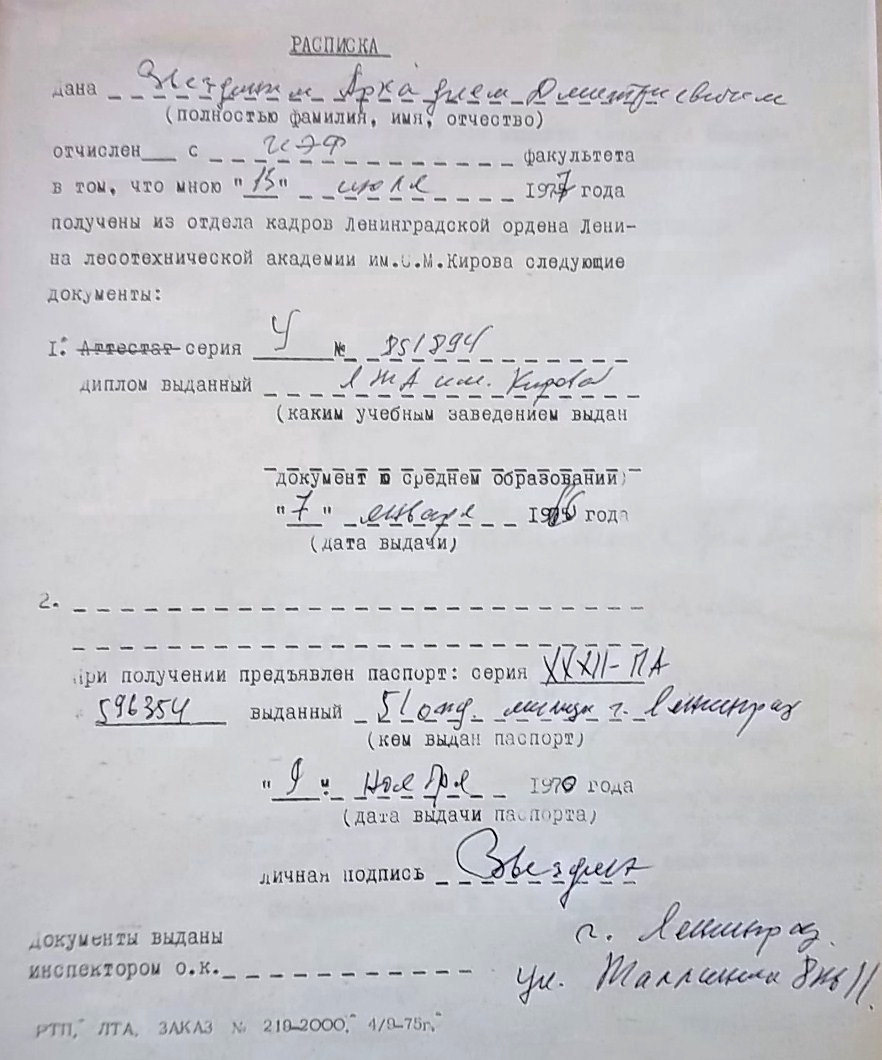 РАСПИСКА
дана Звездиным Аркадием Дмитриевичем
(полностью фамилия, имя, отчество)
отчислен с ИЭФ факультета
в том, что мною "13" июля 1977 года
получены из отдела кадров Ленинградской ордена Лени-
на лесотехнической академии им.С.М.Кирова следующие
документы:
I. Аттестат серия У № 851894
диплом выданный ЛТА им. Кирова
(каким учебным заведением выдан
документ о среднем образовании)
"7" января 1966 года
(дата выдачи)
2.
При получении предъявлен паспорт: серия XXXII-ПА
596354 выданный 51 отд. милиции г. Ленинград
(кем выдан паспорт)
"9" ноября 1970 года
(дата выдачи паспорта)
личная подпись Звездин
документы выданы г. Ленинград
инспектором о.к. ул. Таллинная 8 кв 11.
РТП, ЛТА, ЗАКАЗ № 219-2000, 4/9-75г.